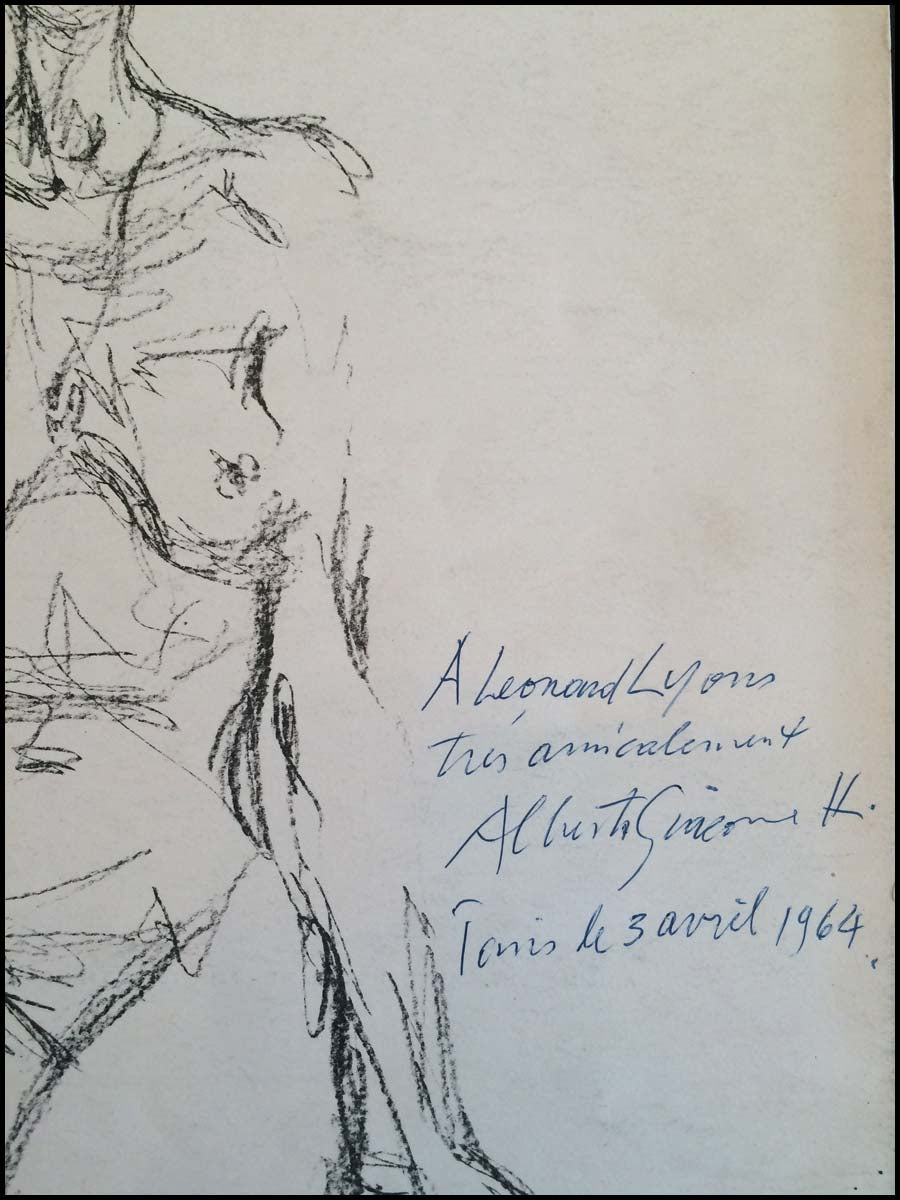 A Leonard Lyons
très amicalement
Alberto Giacometti.
Paris le 3 avril 1964.